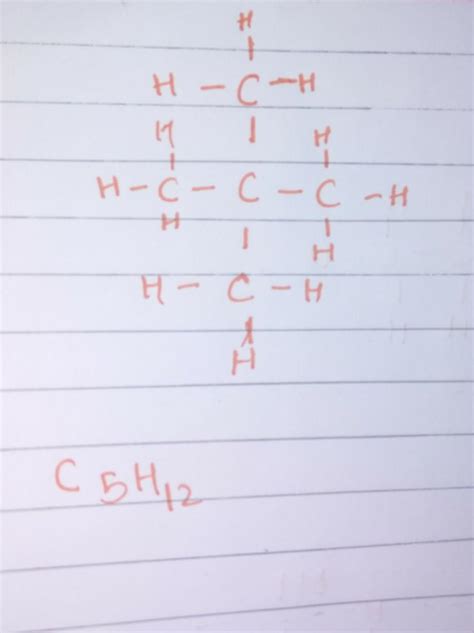 H
|
H – C – H
H | H
| |
H – C – C – C – H
H | |
H
H – C – H
|
H
C5H12